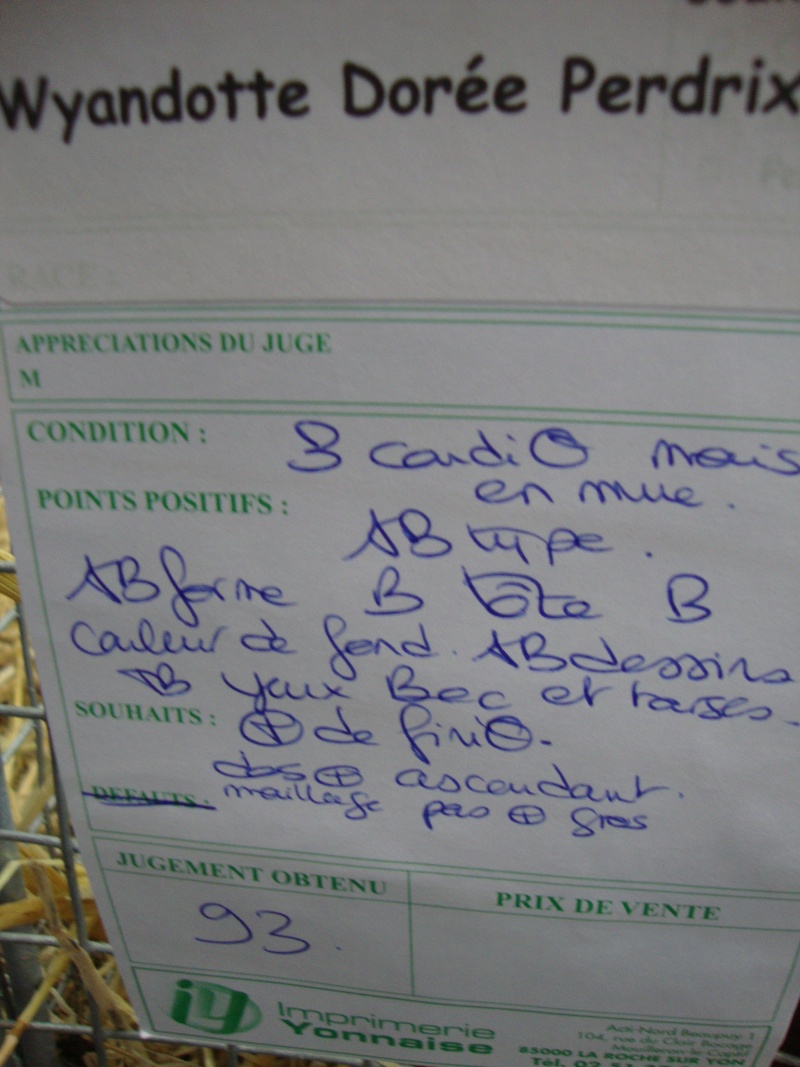 Wyandotte Dorée Perdrix
RACE :
APPRECIATIONS DU JUGE
M
CONDITION : B condi⊖ mais
en mue.
POINTS POSITIFS :
AB type.
AB forme B tête B
couleur de fond. AB dessins
TB yeux Bec et tarses.
SOUHAITS : ⊕ de fini⊖.
dos ⊕ ascendant.
DEFAUTS : maillage pas ⊕ gros
JUGEMENT OBTENU
PRIX DE VENTE
93.
iy Imprimerie
Yonnaise
Acti-Nord Beaupuy 1
104, rue du Clair Bocage
Mouilleron-le-Captif
85000 LA ROCHE SUR YON
Tél. 02 51